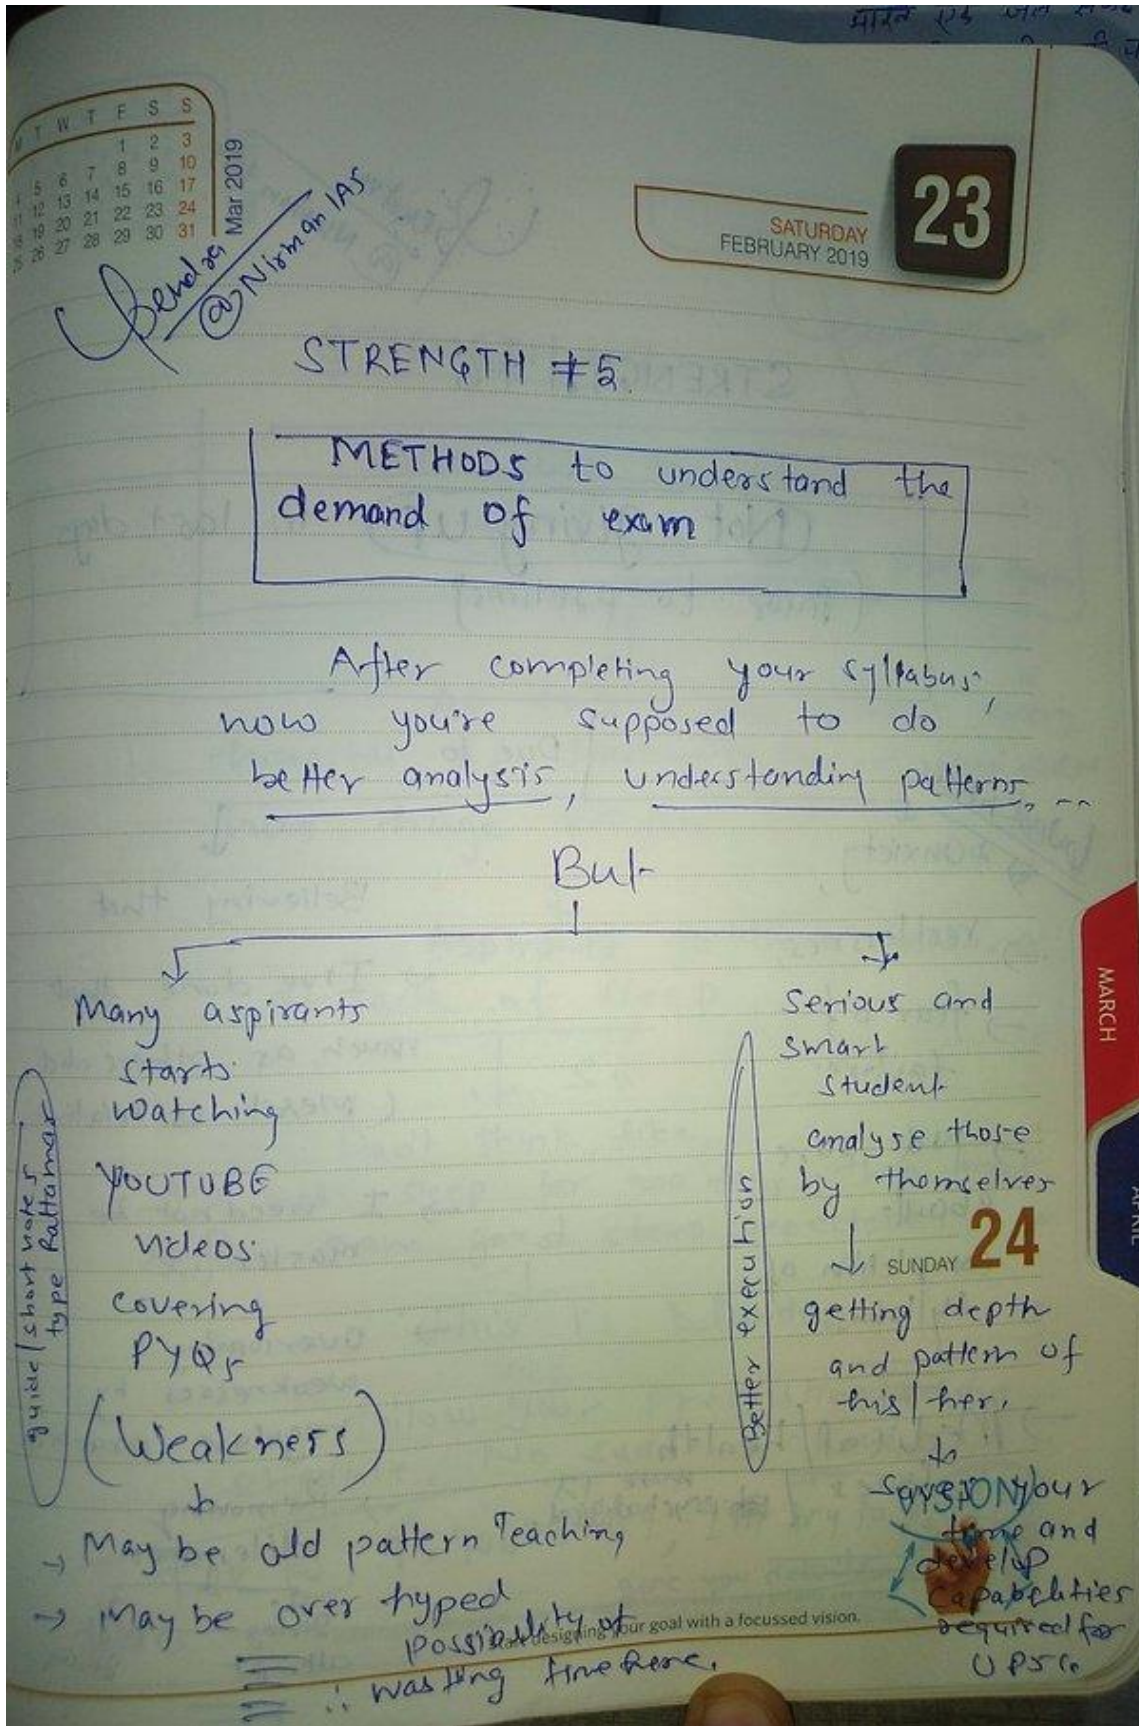 M T W T F S S
1 2 3
4 5 6 7 8 9 10
11 12 13 14 15 16 17
18 19 20 21 22 23 24
25 26 27 28 29 30 31
Mar 2019
@NirmanIAS
23
SATURDAY
FEBRUARY 2019
STRENGTH #5.
METHODS to understand the
demand of exam
After completing your syllabus,
now you're supposed to do
better analysis, understanding patterns, --
But
Many aspirants
starts
watching
YOUTUBE
videos
covering
PYQs
(Weakness)
guide/short notes
type Rattamar
→ May be old pattern Teaching
→ May be over hyped
possibility of
∴ wasting time here.
Serious and
smart
student
analyse those
by themselves
getting depth
and pattern of
his/her.
Saves your
time and
develop
capabilities
required for
UPSC.
Better execution
SUNDAY 24
VISION
Start designing your goal with a focussed vision.
MARCH
APRIL